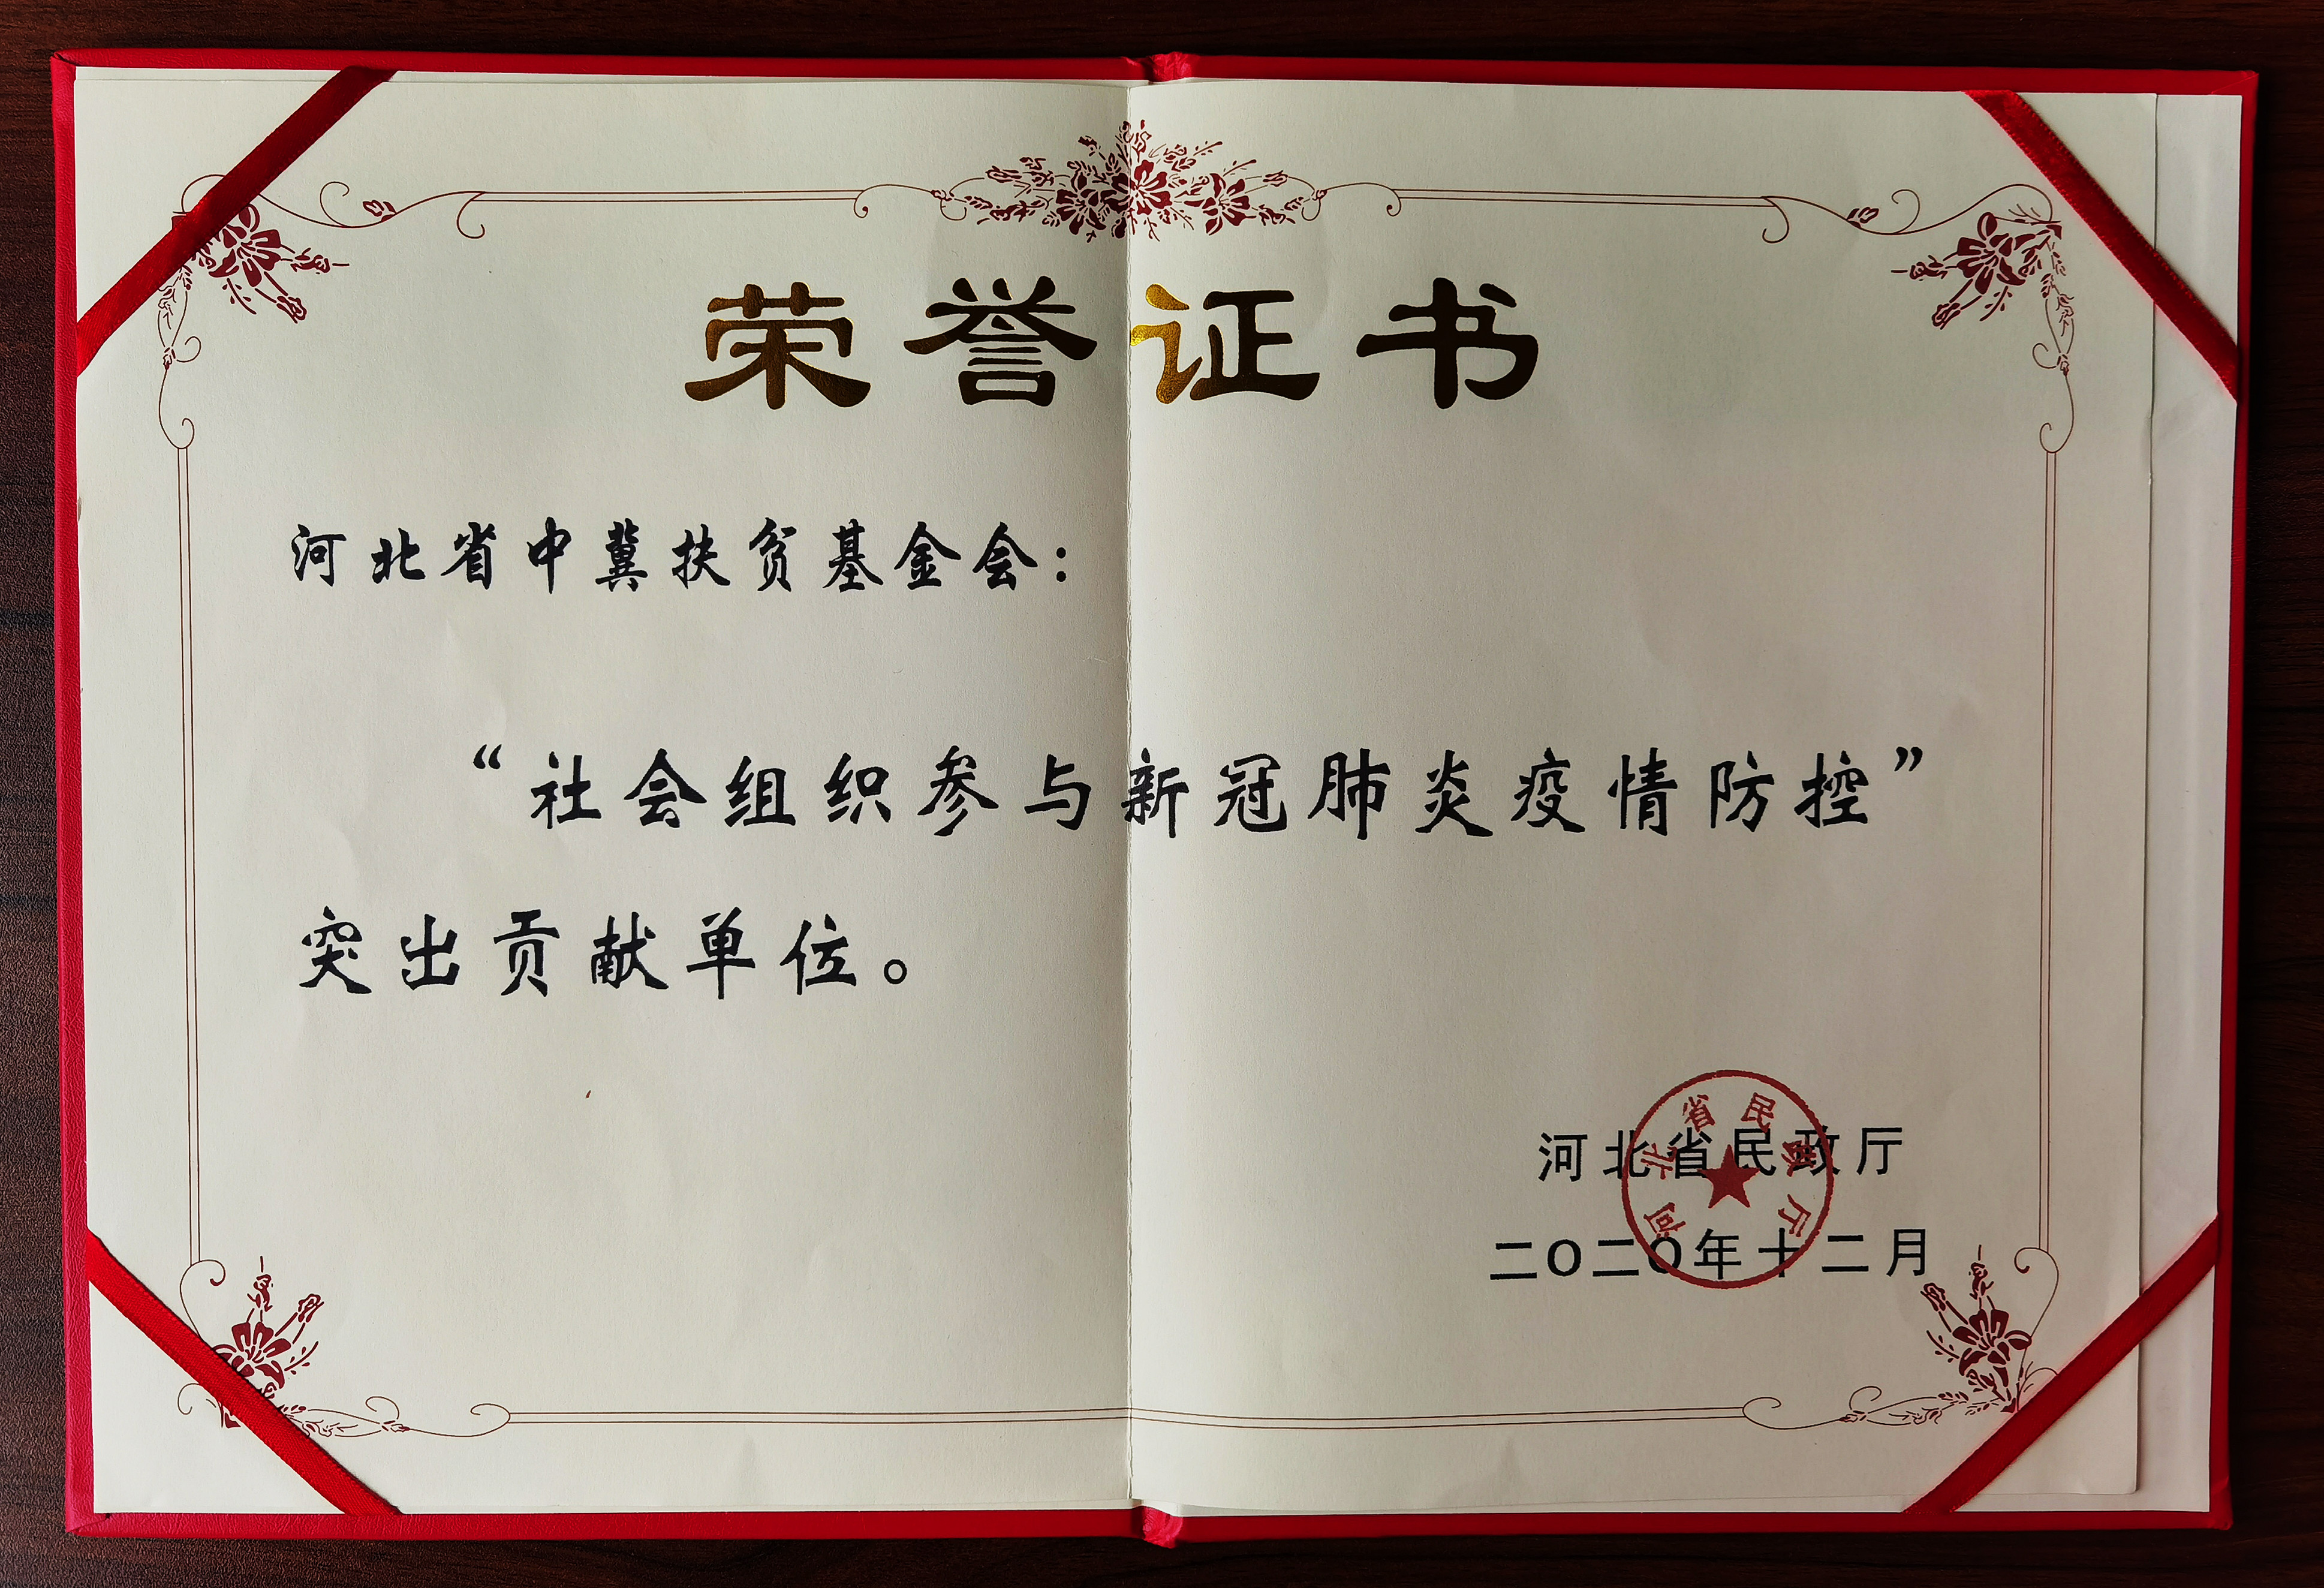 荣誉证书
河北省中冀扶贫基金会：
“社会组织参与新冠肺炎疫情防控”
突出贡献单位。
河北省民政厅
二〇二〇年十二月
河北省民政厅